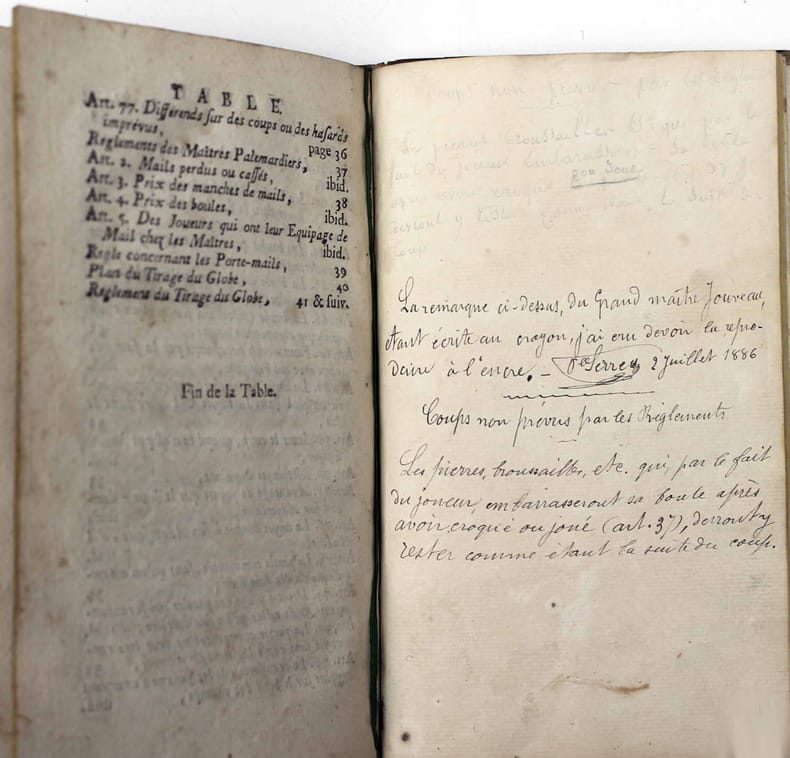 TABLE.
Art. 77. Différends sur des coups ou des hasards
imprévus, page 36
Reglements des Maîtres Palemardiers, 37
Art. 2. Mails perdus ou cassés, ibid.
Art. 3. Prix des manches de mails, 38
Art. 4. Prix des boules, ibid.
Art. 5. Des Joueurs qui ont leur Equipage de
Mail chez les Maîtres, ibid.
Regle concernant les Porte-mails, 39
Plan du Tirage du Globe, 40
Reglement du Tirage du Globe, 41 & suiv.
Fin de la Table.
Coups non prévus par les
Les pierres broussailles etc qui par le
fait du joueur embarasse sa boule
ou joué
après avoir croqué
devront y rester comme la suite du
coup
La remarque ci-dessus, du Grand maître Jouveau,
étant écrite au crayon, j'ai cru devoir la repro-
duire à l'encre. _ Serre 2 Juillet 1886
Coups non prévus par les Règlements
Les pierres, broussailles, etc. qui, par le fait
du joueur, embarrasseront sa boule après
avoir croqué ou joué (art. 37), devront y
rester comme étant la suite du coup.